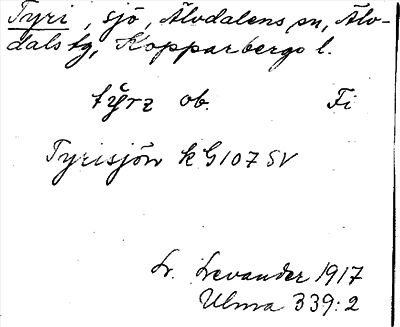 Tyri, sjö, Älvdalens sn, Älv-
dals tg, Kopparbergs l.
ob. Fi
Tyrisjön k G107 SV
Lr. Levander 1917
Ulma 339:2